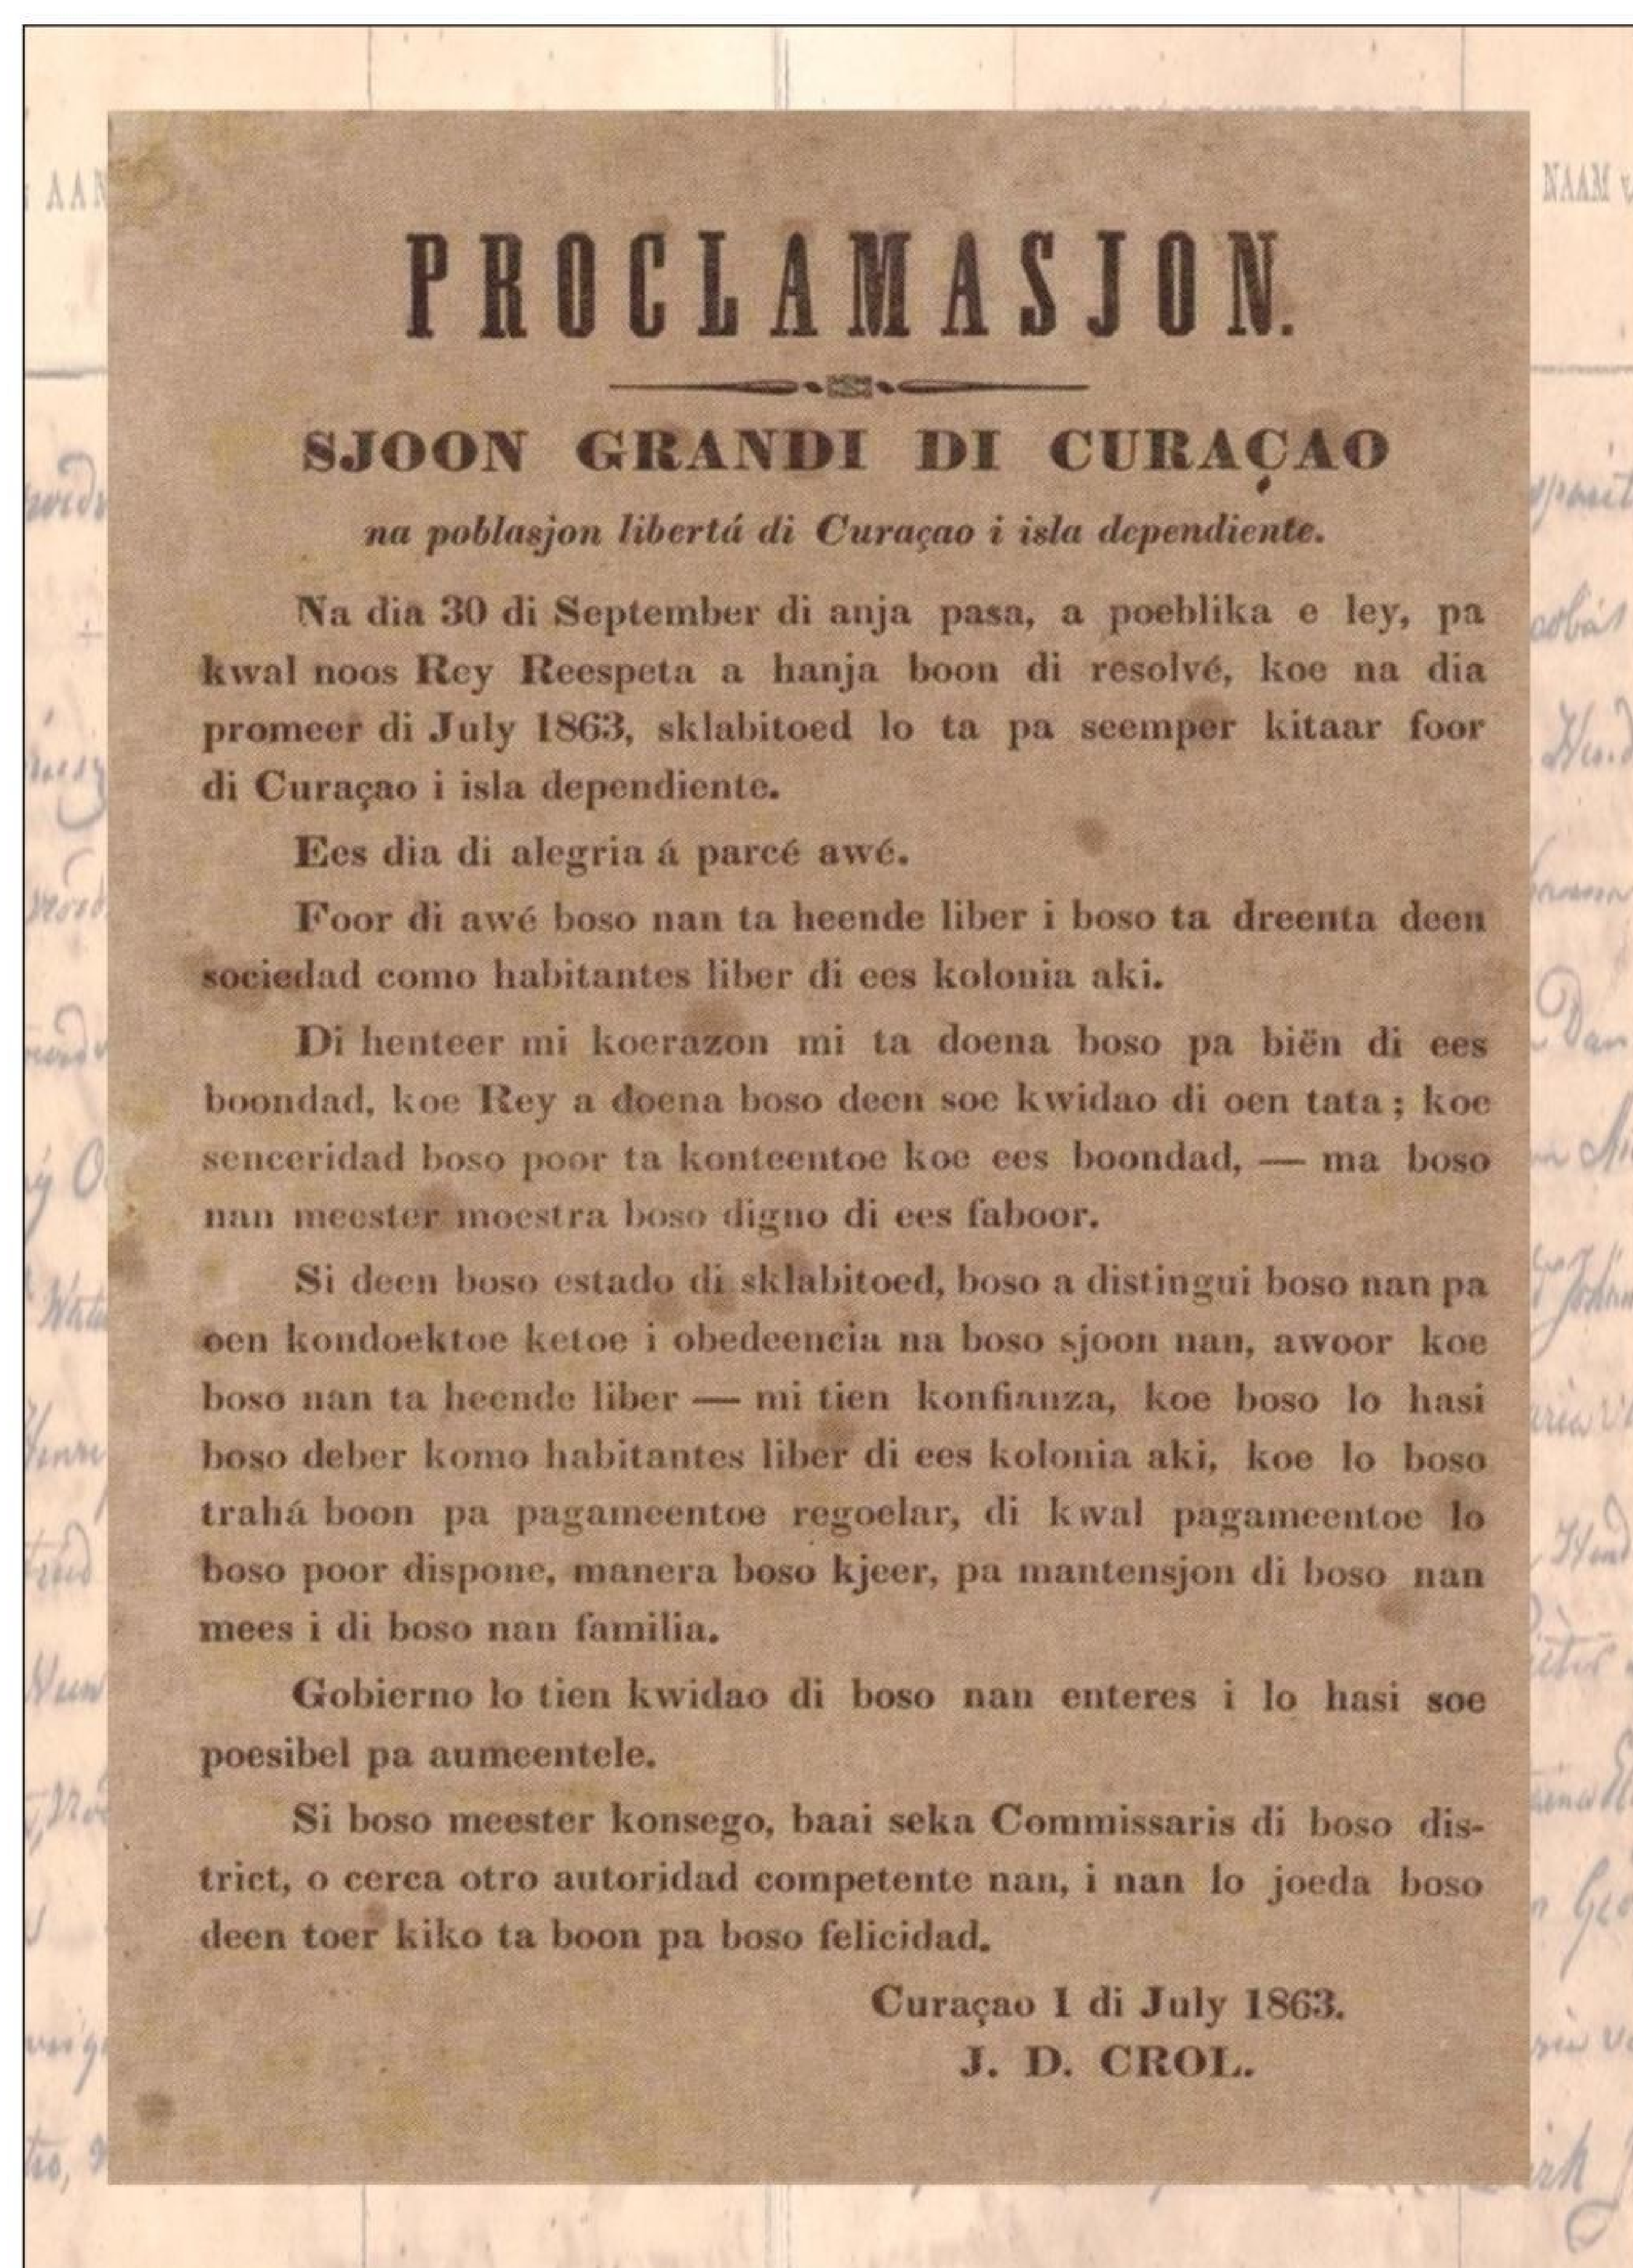 PROCLAMASJON.
SJOON GRANDI DI CURAÇAO
na poblasjon libertá di Curaçao i isla dependiente.
Na dia 30 di September di anja pasa, a poeblika e ley, pa
kwal noos Rey Reespeta a hanja boon di resolvé, koe na dia
promeer di July 1863, sklabitoed lo ta pa seemper kitaar foor
di Curaçao i isla dependiente.
Ees dia di alegria á parcé awé.
Foor di awé boso nan ta heende liber i boso ta dreenta deen
sociedad como habitantes liber di ees kolonia aki.
Di henteer mi koerazon mi ta doena boso pa biën di ees
boondad, koe Rey a doena boso deen soe kwidao di oen tata; koe
senceridad boso poor ta konteentoe koe ees boondad, — ma boso
nan meester moestra boso digno di ees faboor.
Si deen boso estado di sklabitoed, boso a distingui boso nan pa
oen kondoektoe ketoe i obedeencia na boso sjoon nan, awoor koe
boso nan ta heende liber — mi tien konfianza, koe boso lo hasi
boso deber komo habitantes liber di ees kolonia aki, koe lo boso
trahá boon pa pagameentoe regoelar, di kwal pagameentoe lo
boso poor dispone, manera boso kjeer, pa mantensjon di boso nan
mees i di boso nan familia.
Gobierno lo tien kwidao di boso nan enteres i lo hasi soe
poesibel pa aumeentele.
Si boso meester konsego, baai seka Commissaris di boso dis-
trict, o cerca otro autoridad competente nan, i nan lo joeda boso
deen toer kiko ta boon pa boso felicidad.
Curaçao 1 di July 1863.
J. D. CROL.
NAAM